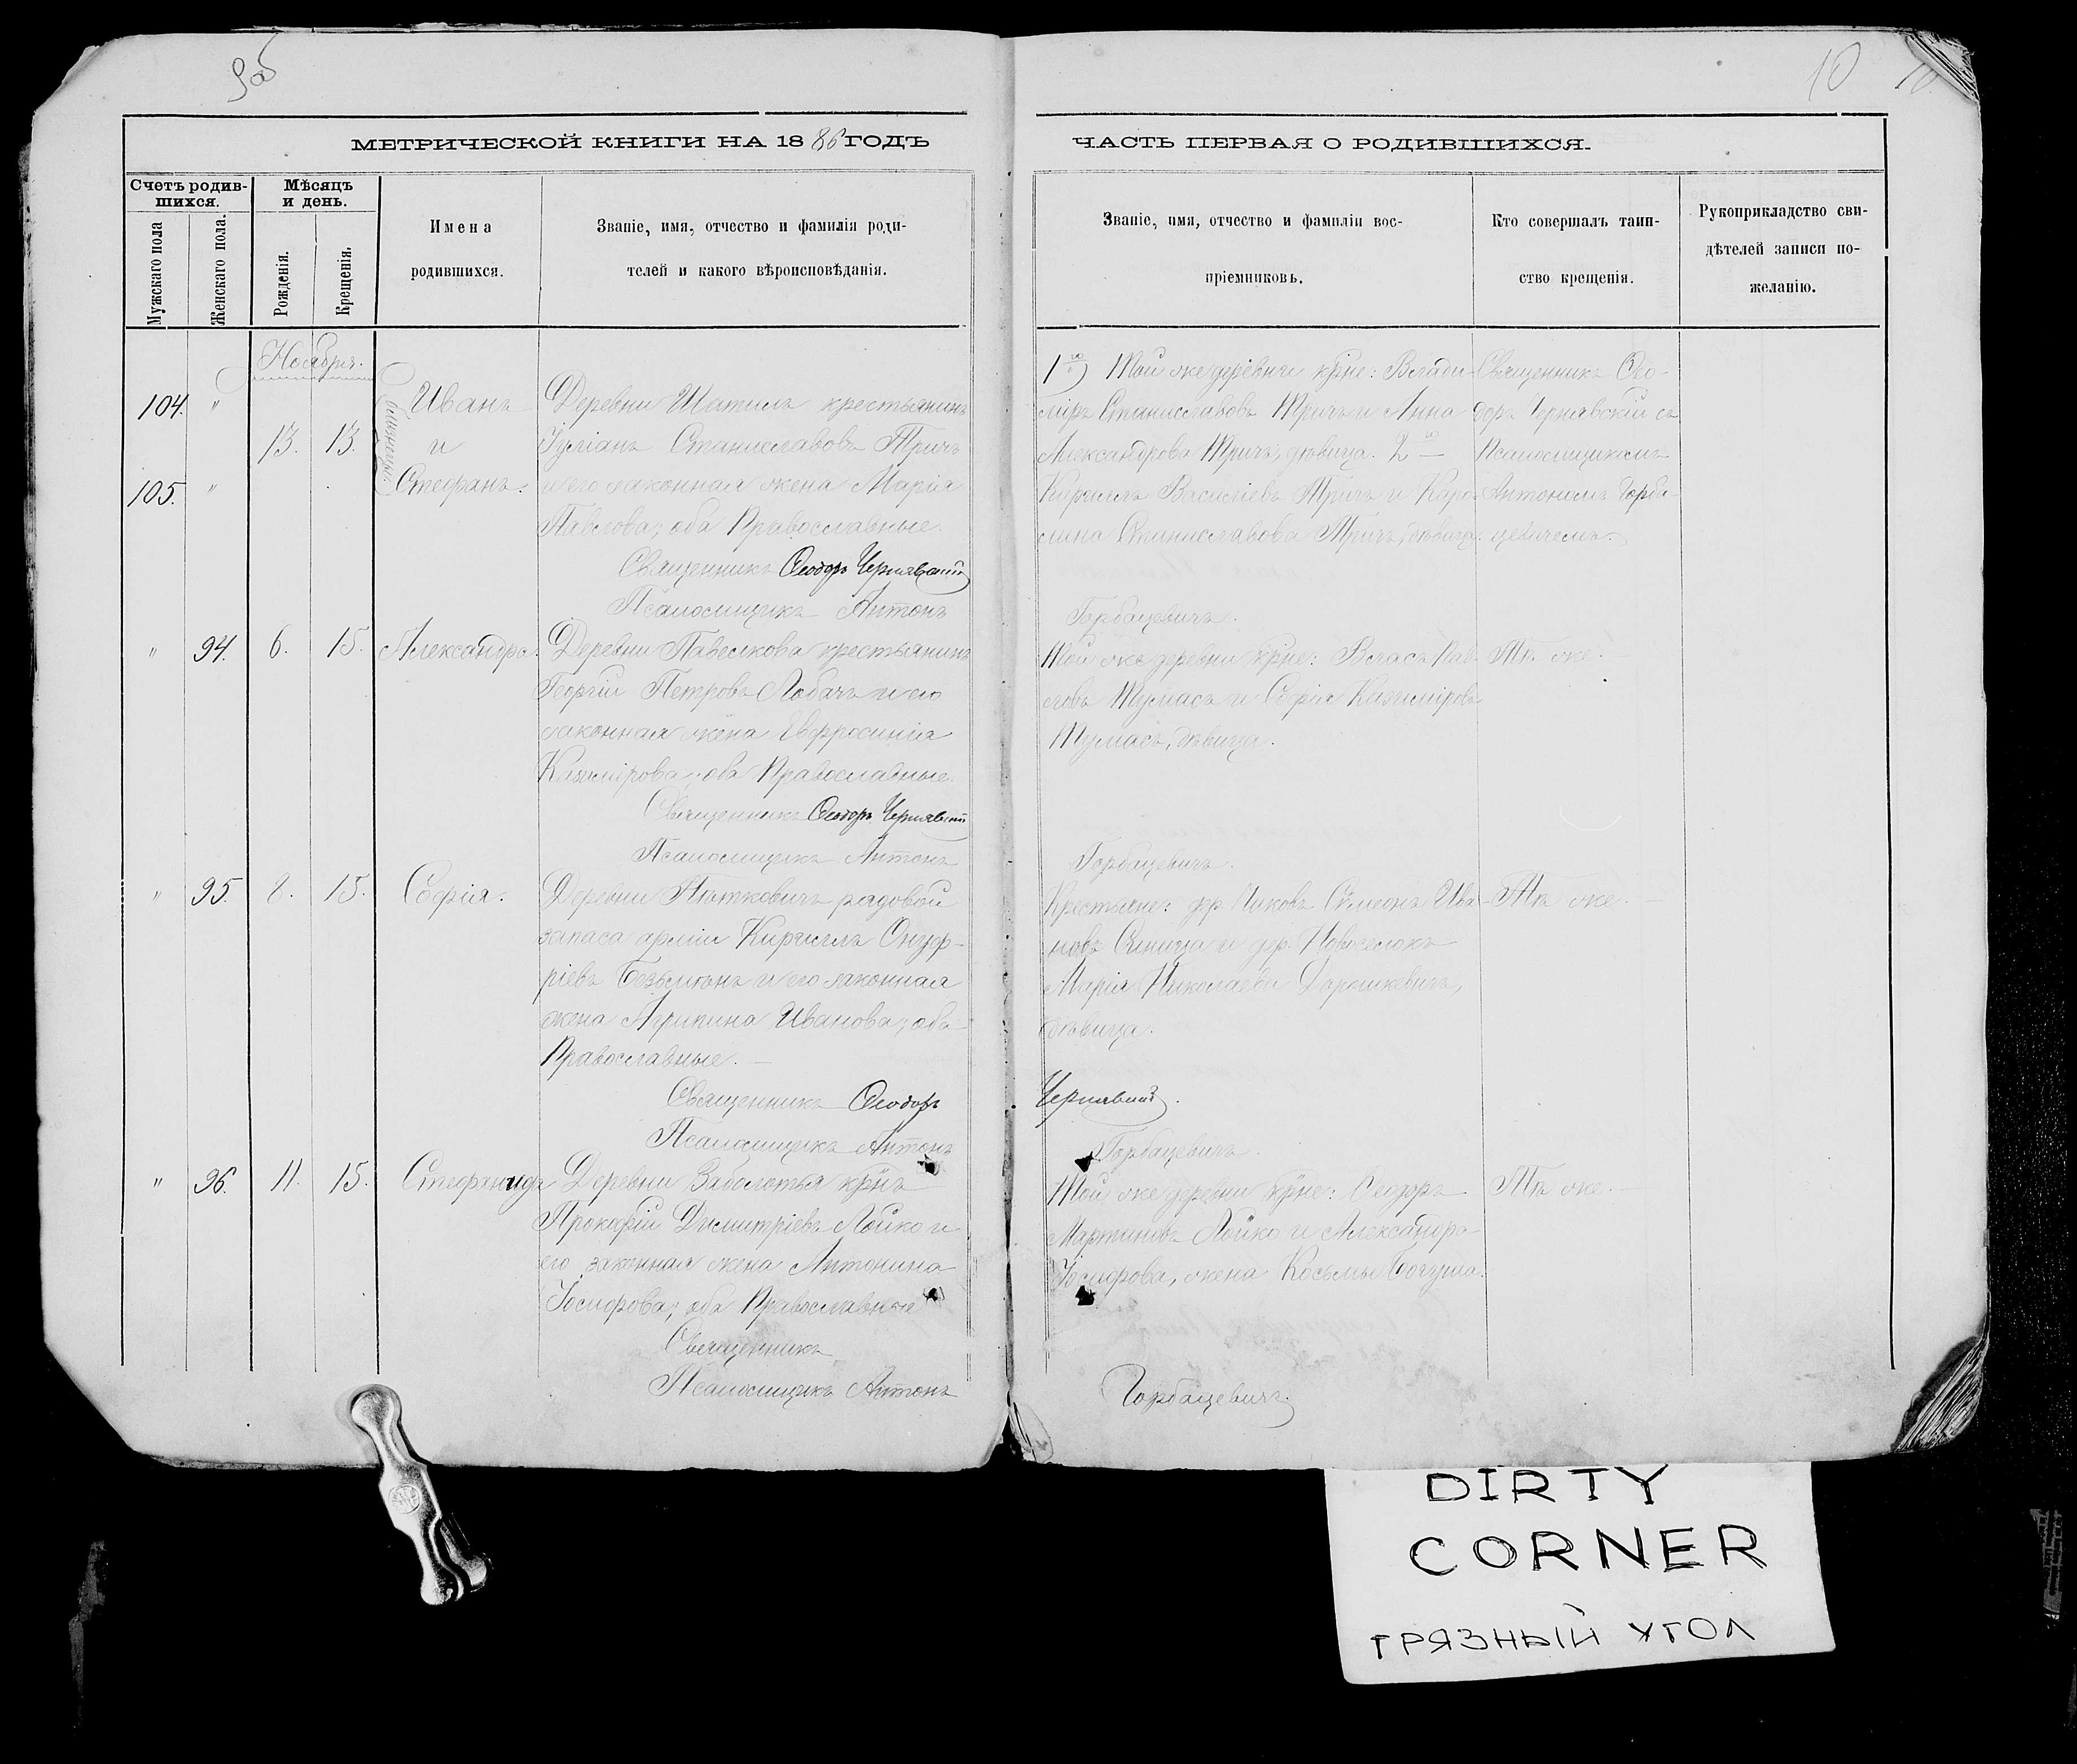 9об
10
МЕТРИЧЕСКОЙ КНИГИ НА 1886 ГОДЪ
ЧАСТЬ ПЕРВАЯ О РОДИВШИХСЯ.
Счетъ родив-
шихся.
Мужскаго пола
Женскаго пола.
Мѣсяцъ
и день.
Рожденія.
Крещенія.
Имена
родившихся.
Званіе, имя, отчество и фамилія роди-
телей и какого вѣроисповѣданія.
Званіе, имя, отчество и фамиліи вос-
пріемниковъ.
Кто совершалъ таин-
ство крещенія.
Рукоприкладство сви-
дѣтелей записи по-
желанію.
Ноября.
104. "
13. 13.
105. "
близнецы.
Иванъ
и
Стефанъ.
Деревни Шатилъ крестьянинъ
Іуліанъ Станиславовъ Тричъ
и его законная жена Марія
Павлова; оба Православные.
Священникъ Ѳеодоръ Чернявскій
Псаломщикъ Антонъ
1го) Той же деревни крꙵне: Влади-
міръ Станиславовъ Тричъ и Анна
Александрова Тричъ, дѣвица. 2го
Кириллъ Василіевъ Тричъ и Каро-
лина Станиславова Тричъ, дѣвица.
Горбацевичъ.
Священникъ Ѳео-
доръ Чернявскій съ
Псаломщикомъ
Антономъ Горба-
цевичемъ.
" 94. 6. 15. Александра.
Деревни крестьянинъ
Георгій Петровъ Лобачъ и его
законная жена Евфросинія
Казимірова; оба Православные.
Священникъ Ѳеодоръ Чернявскій
Псаломщикъ Антонъ
Той же деревни крꙵне: Власъ Пав-
ловъ Тумасъ и Софія Казимірова
Тумасъ, дѣвица.
Горбацевичъ.
Тѣ же.
" 95. 8. 15. Софія.
Деревни рядовой
запаса арміи Кириллъ Онуф-
ріевъ и его законная
жена Агрипина Иванова; оба
Православные.
Священникъ Ѳеодоръ
Псаломщикъ Антонъ
Крестьяне: дер. Симеонъ Ива-
новъ Синица и дер. Новоселокъ
Марія Николаева Дорошкевичъ,
дѣвица.
Чернявскій.
Горбацевичъ.
Тѣ же.
" 96. 11. 15. Стефанида
Деревни Заболотья крꙵнъ
Прокофій Димитріевъ Лойко и
его законная жена Антонина
Іосифова; оба Православные
Священникъ
Псаломщикъ Антонъ
Той же деревни крꙵне: Ѳеодоръ
Мартиновъ Лойко и Александра
Іосифова, жена Косьмы Богуша.
Горбацевичъ.
Тѣ же.
DIRTY
CORNER
ГРЯЗНЫЙ УГОЛ